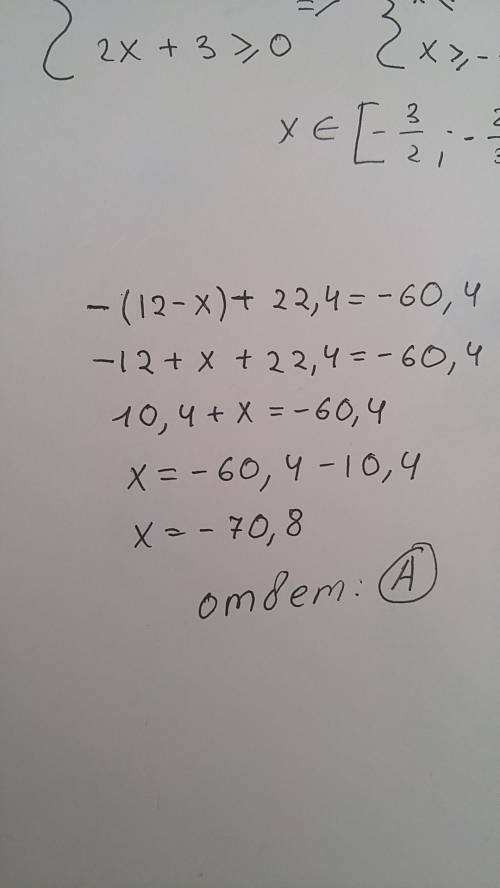 { 2x + 3 ⩾ 0 => { x ⩾ -
x ∈ [- 3/2 ; - 2/3
-(12-x)+ 22,4 = -60,4
-12 + x + 22,4 = -60,4
10,4 + x = -60,4
x = -60,4 - 10,4
x = - 70,8
ответ: A